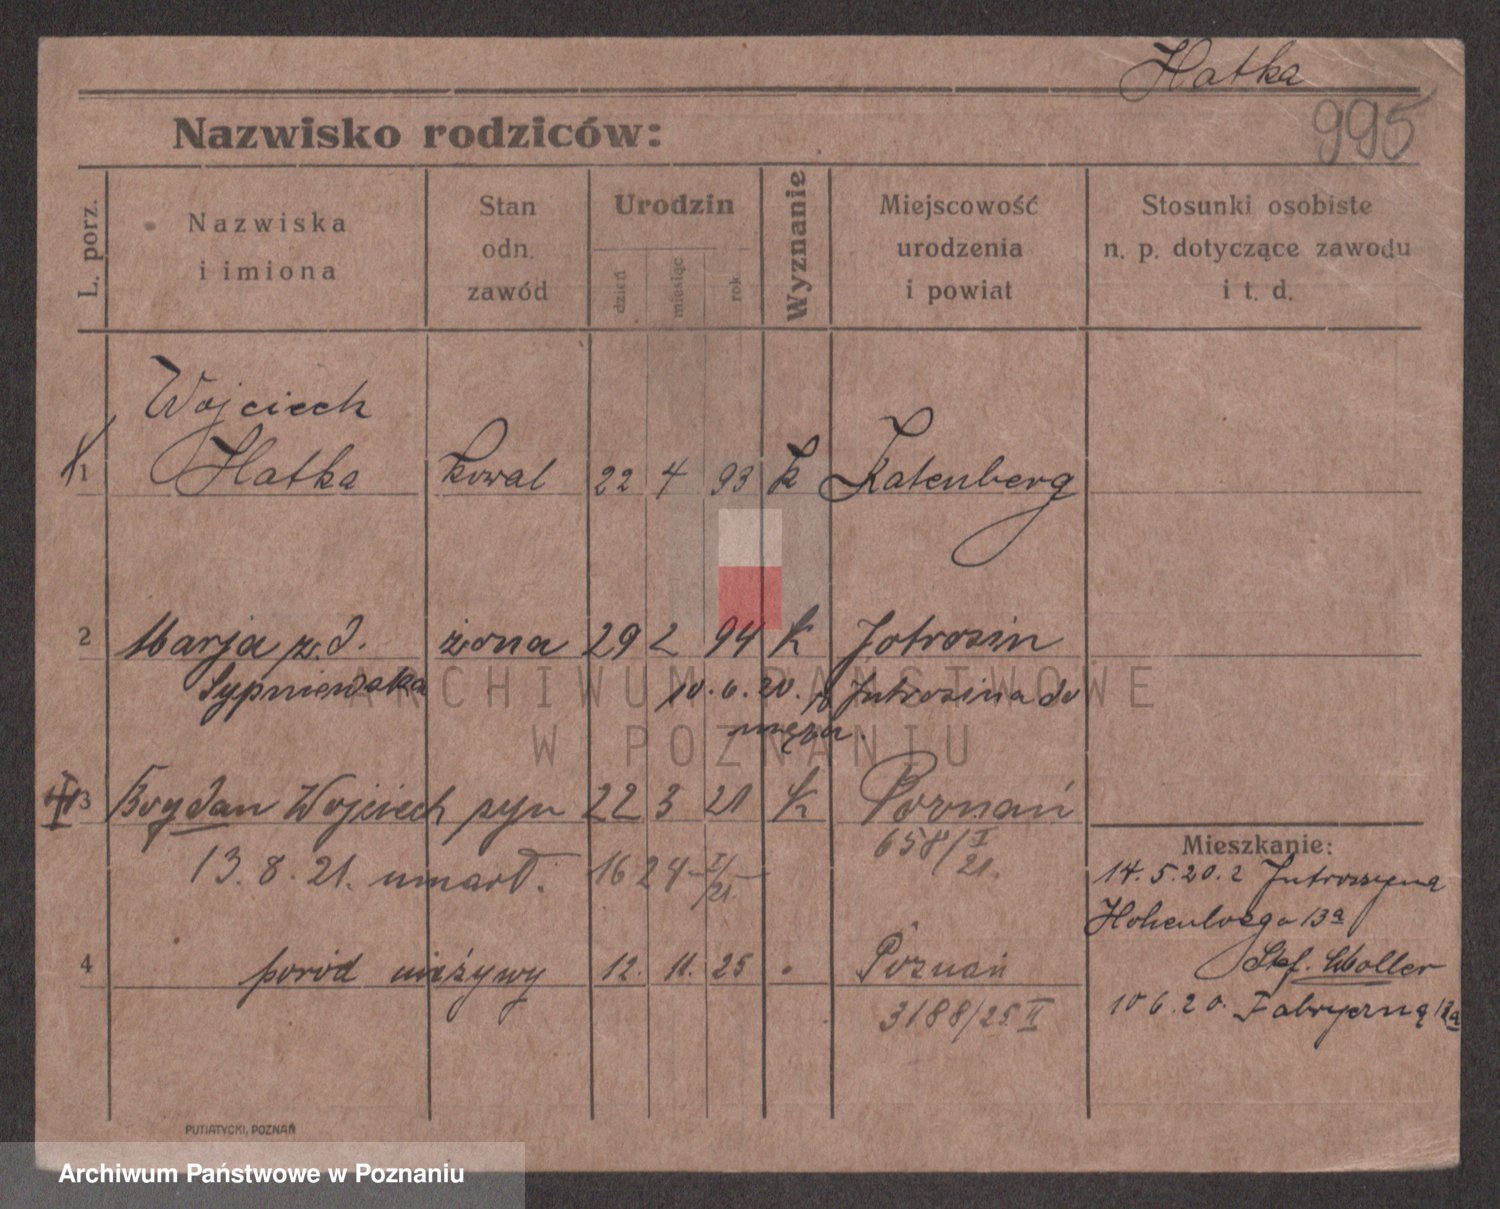 Hatka
995
Nazwisko rodziców:
L. porz.
Nazwiska
i imiona
Stan
odn.
zawód
Urodzin
dzień
miesiąc
rok
Wyznanie
Miejscowość
urodzenia
i powiat
Stosunki osobiste
n. p. dotyczące zawodu
i t. d.
Wojciech
1 Hatka kowal 22 4 93 k Katenberg
2 Marja z. d. żona 29 2 94 k Jotrosin
Sypniewska 10. 6. 20. z Jutrosina do
męża.
3 Bogdan Wojciech syn 22 3 21 k Poznań
658/I
21.
13. 8. 21. umarł. 1624 I/21
4 poród nieżywy 12. 11. 25 Poznań
3188/25 II
Mieszkanie:
14. 5. 20. z Jutroszyna
13a
Stef.
10 6. 20. Fabryczną
PUTIATYCKI, POZNAŃ
ARCHIWUM PAŃSTWOWE
W POZNANIU
Archiwum Państwowe w Poznaniu